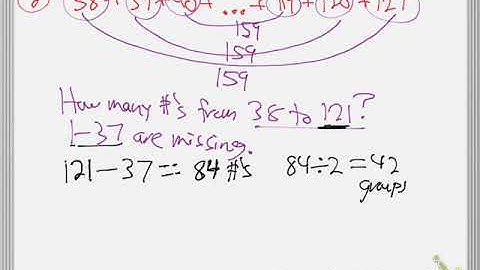 38+39+40+ ... +119+120+121
159
159
159
How many #'s from 38 to 121?
1-37 are missing.
121-37 = 84 #'s 84÷2=42
groups